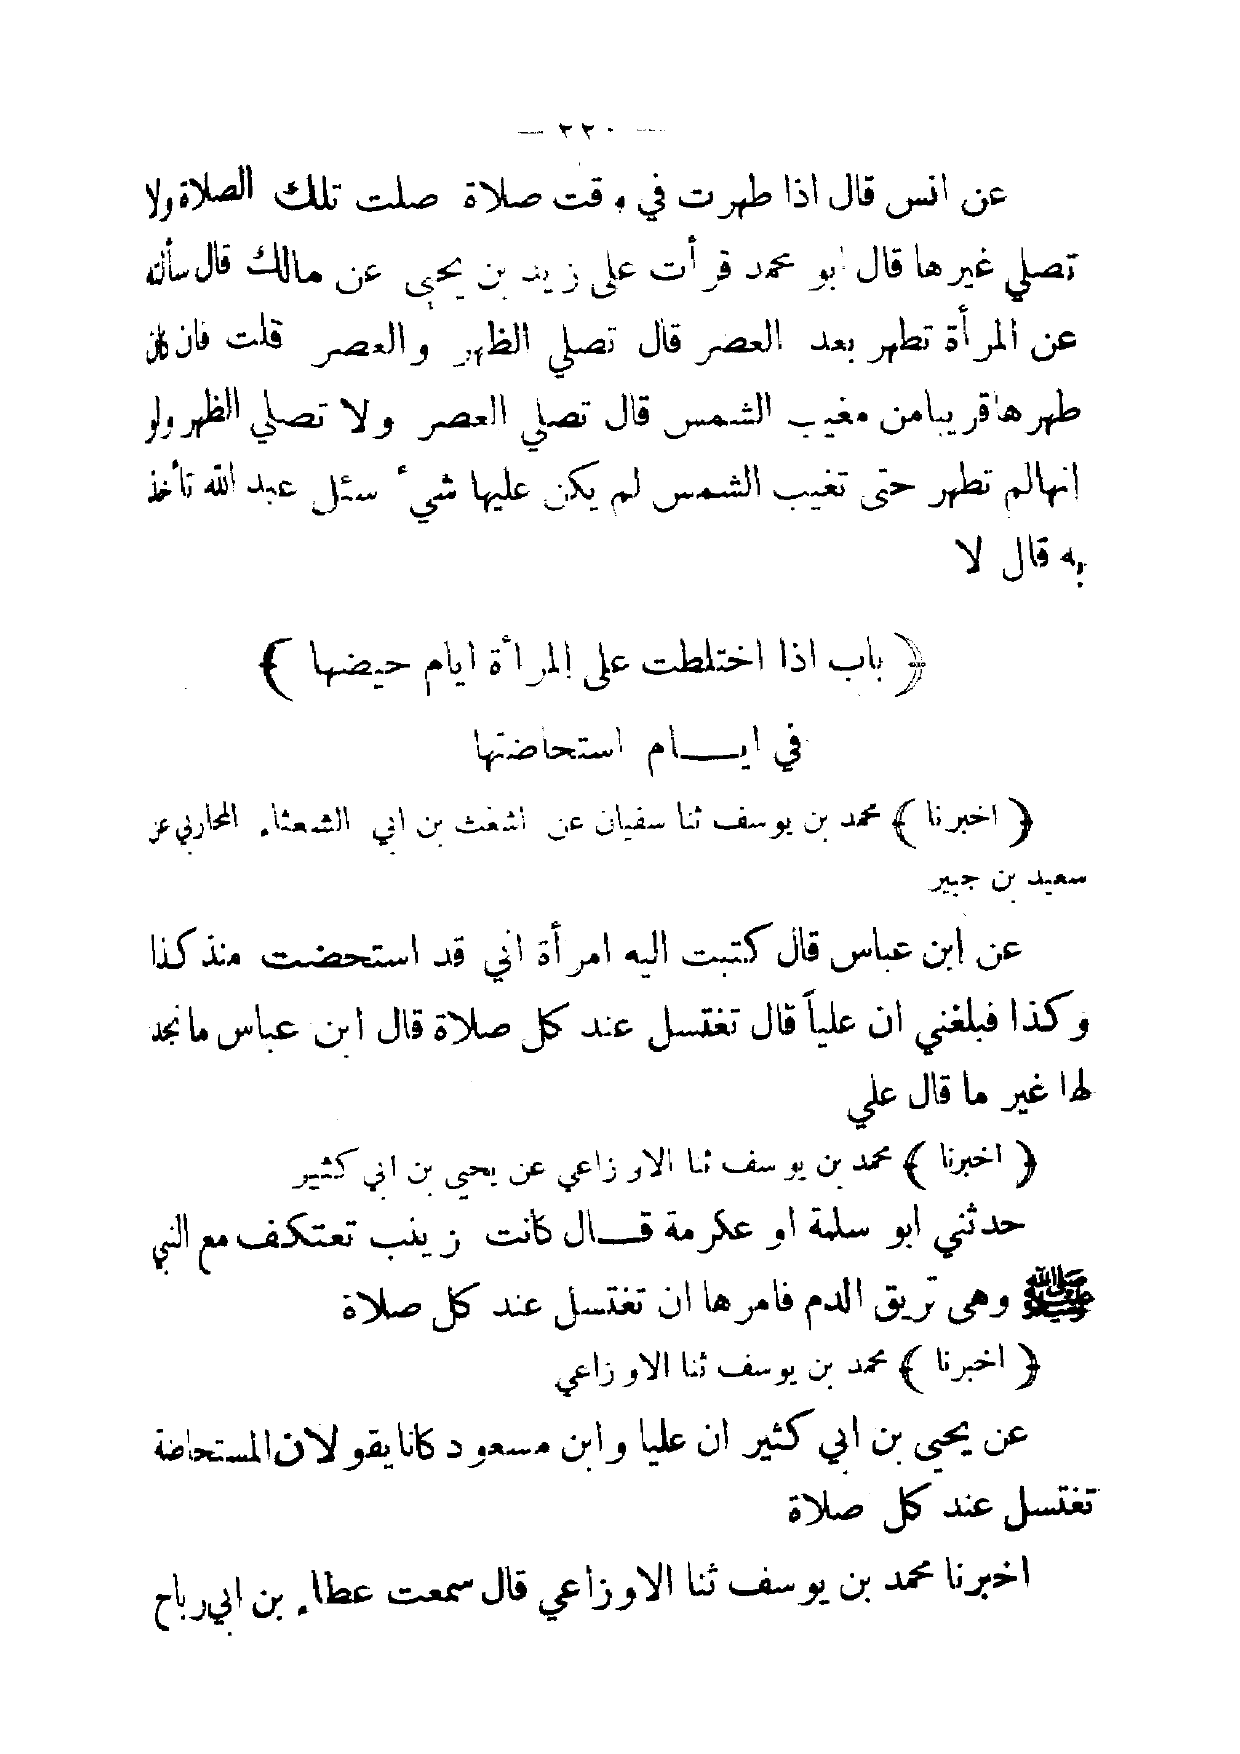 — ٢٢٠ —
عن انس قال اذا طهرت في وقت صلاة صلت تلك الصلاة ولا
تصلي غيرها قال ابو محمد قرأت على زيد بن يحيى عن مالك قال سألته
عن المرأة تطهر بعد العصر قال تصلي الظهر والعصر قلت فان كان
طهرها قريبا من مغيب الشمس قال تصلي العصر ولا تصلي الظهر ولو
انها لم تطهر حتى تغيب الشمس لم يكن عليها شيء سئل عبد الله تأخذ
به قال لا
﴿ باب اذا اختلطت على المرأة ايام حيضها ﴾
في ايـــام استحاضتها
﴿ اخبرنا ﴾ محمد بن يوسف ثنا سفيان عن اشعث بن ابي الشعثاء المحاربي عن
سعيد بن جبير
عن ابن عباس قال كتبت اليه امرأة اني قد استحضت منذ كذا
وكذا فبلغني ان علياً قال تغتسل عند كل صلاة قال ابن عباس ما نجد
لها غير ما قال علي
﴿ اخبرنا ﴾ محمد بن يوسف ثنا الاوزاعي عن يحيى بن ابي كثير
حدثني ابو سلمة او عكرمة قـــال كانت زينب تعتكف مع النبي
ﷺ وهي تريق الدم فامرها ان تغتسل عند كل صلاة
﴿ اخبرنا ﴾ محمد بن يوسف ثنا الاوزاعي
عن يحيى بن ابي كثير ان عليا وابن مسعود كانا يقولان المستحاضة
تغتسل عند كل صلاة
اخبرنا محمد بن يوسف ثنا الاوزاعي قال سمعت عطاء بن ابي رباح